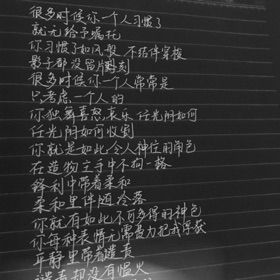 很多时候你一个人习惯了
就无给予嘱托
你习惯了如风般 不断停穿梭
影子都没留片刻
很多时候你一个人常常是
只考虑一个人的
你独舞喜怒哀乐 任光阴如何
任光阴如何收割
你就是如此令人神往的角色
在造物主手中不拘一格
锋利中带着柔和
柔和里伴随冷落
你就有如此不可多得的神色
你每种表情无需费力把我俘获
平静里带着谴责
谴责却没有愠火